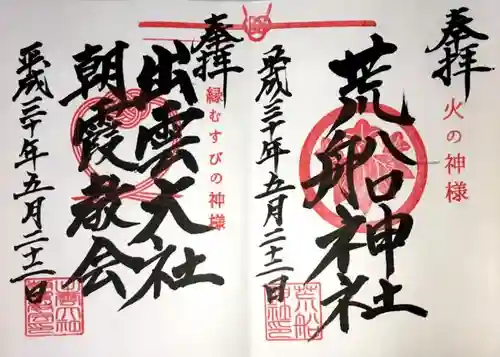 奉拝
火の神様
荒船神社
平成三十年五月二十二日
荒船神社印
奉拝
縁むすびの神様
出雲大社
朝霞教会
平成三十年五月二十二日